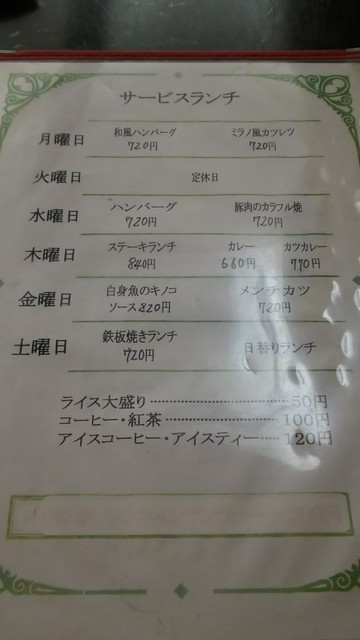 サービスランチ
月曜日 和風ハンバーグ ミラノ風カツレツ
720円 720円
火曜日 定休日
水曜日 ハンバーグ 豚肉のカラフル焼
720円 720円
木曜日 ステーキランチ カレー カツカレー
840円 660円 770円
金曜日 白身魚のキノコ メンチカツ
ソース820円 720円
土曜日 鉄板焼きランチ 日替りランチ
720円
ライス大盛り……………………50円
コーヒー・紅茶…………………100円
アイスコーヒー・アイスティー……120円